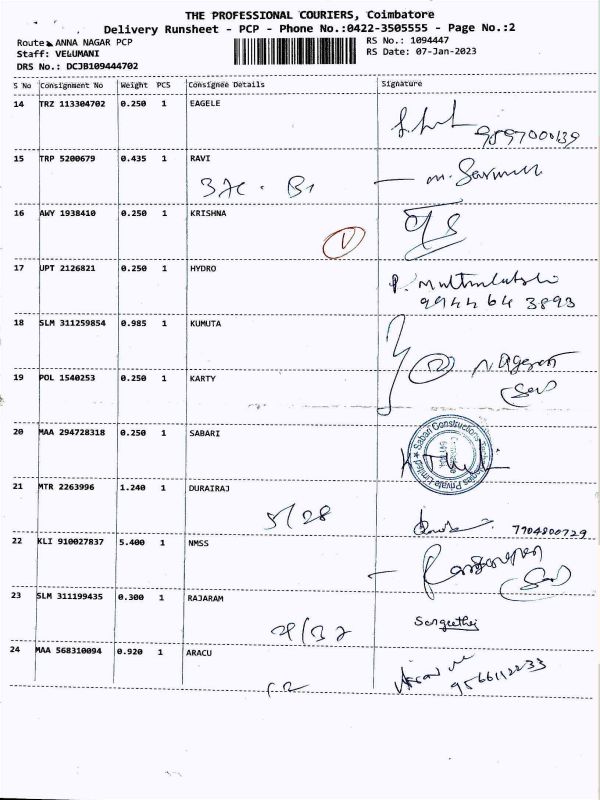 THE PROFESSIONAL COURIERS, Coimbatore
Delivery Runsheet - PCP - Phone No.:0422-3505555 - Page No.:2
Route: ANNA NAGAR PCP
RS No.: 1094447
Staff: VELUMANI
RS Date: 07-Jan-2023
DRS No.: DCJB109444702
S No Consignment No Weight PCS Consignee Details Signature
14 TRZ 113304702 0.250 1 EAGELE
9597000139
15 TRP 5200679 0.435 1 RAVI
37C - B1
16 AWY 1938410 0.250 1 KRISHNA
17 UPT 2126821 0.250 1 HYDRO
P. Muthulakshi
9944643893
18 SLM 311259854 0.985 1 KUMUTA
19 POL 1540253 0.250 1 KARTY
20 MAA 294728318 0.250 1 SABARI
21 MTR 2263996 1.240 1 DURAIRAJ
5/28
7704800729
22 KLI 910027837 5.400 1 NMSS
23 SLM 311199435 0.300 1 RAJARAM
Sangeetha
24 MAA 568310094 0.920 1 ARACU
9566112233